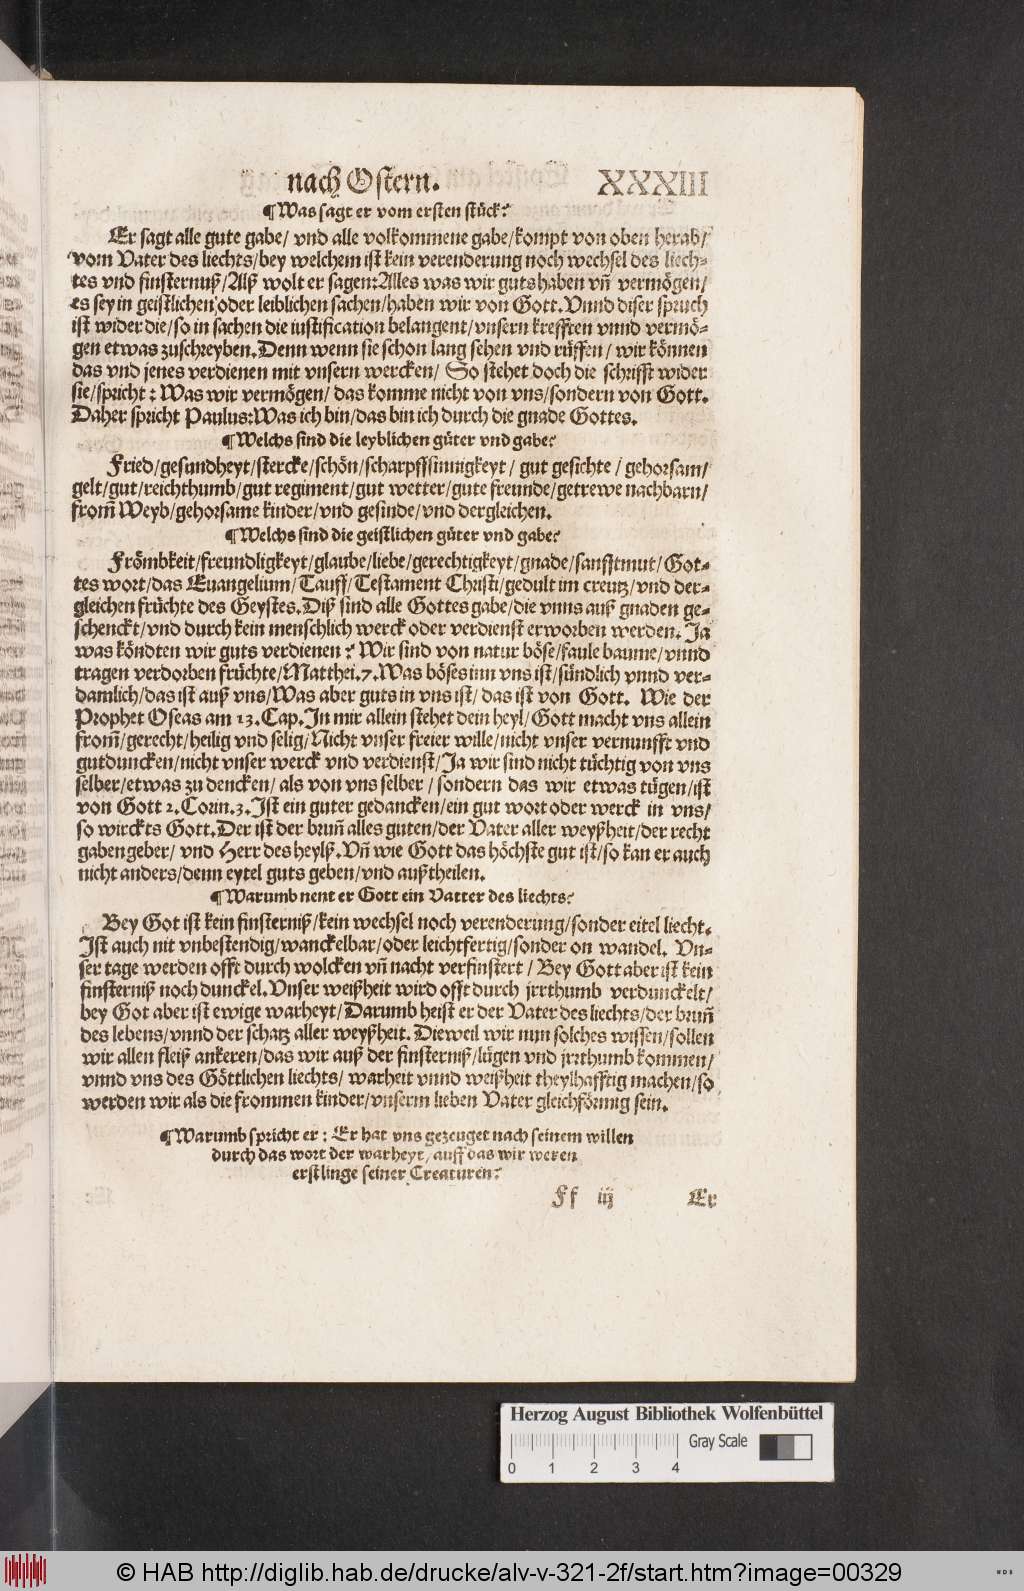 nach Ostern. XXXIII
¶ Was sagt er vom ersten stück?
Er sagt alle gute gabe/ vnd alle volkommene gabe/kompt von oben herab/
vom Vater des liechts/bey welchem ist kein verenderung noch wechsel des liech-
tes vnd finsternuß/Alß wolt er sagen:Alles was wir guts haben vñ vermögen/
es sey in geistlichen oder leiblichen sachen/haben wir von Gott.Vnnd diser spruch
ist wider die/so in sachen die iustification belangent/vnsern krefften vnnd vermö-
gen etwas zuschreyben.Denn wenn sie schon lang sehen vnd rüffen/ wir können
das vnd jenes verdienen mit vnsern wercken/ So stehet doch die schrifft wider
sie/spricht: Was wir vermögen/ das komme nicht von vns/sondern von Gott.
Daher spricht Paulus:Was ich bin/das bin ich durch die gnade Gottes.
¶ Welchs sind die leyblichen güter vnd gabe?
Fried/gesundheyt/stercke/schön/scharpffsinnigkeyt/ gut gesichte/gehorsam/
gelt/gut/reichthumb/gut regiment/gut wetter/gute freunde/getrewe nachbarn/
from̃ Weyb/gehorsame kinder/vnd gesinde/vnd dergleichen.
¶ Welchs sind die geistlichen güter vnd gabe?
Frömbkeit/freundligkeyt/glaube/liebe/gerechtigkeyt/gnade/sanfftmut/Got-
tes wort/das Euangelium/Tauff/Testament Christi/gedult im creutz/vnd der-
gleichen früchte des Geystes.Diß sind alle Gottes gabe/die vnns auß gnaden ge-
schenckt/vnd durch kein menschlich werck oder verdienst erworben werden. Ja
was köndten wir guts verdienen? Wir sind von natur böse/faule baume/vnnd
tragen verdorben früchte/Matthei.7.Was böses inn vns ist/sündlich vnnd ver-
damlich/das ist auß vns/Was aber guts in vns ist/das ist von Gott. Wie der
Prophet Oseas am 13.Cap.In mir allein stehet dein heyl/Gott macht vns allein
from̃/gerecht/heilig vnd selig/Nicht vnser freier wille/nicht vnser vernunfft vnd
gutduncken/nicht vnser werck vnd verdienst/Ja wir sind nicht tüchtig von vns
selber/etwas zu dencken/als von vns selber/sondern das wir etwas tügen/ist
von Gott 2.Corin.3.Ist ein guter gedancken/ein gut wort oder werck in vns/
so wirckts Gott.Der ist der brun̄ alles guten/der Vater aller weyßheit/der recht
gabengeber/ vnd Herr des heylß.Vñ wie Gott das höchste gut ist/so kan er auch
nicht anders/denn eytel guts geben/vnd außtheilen.
¶ Warumb nent er Gott ein Vatter des liechts?
Bey Got ist kein finsterniß/kein wechsel noch verenderung/sonder eitel liecht.
Ist auch nit vnbestendig/wanckelbar/oder leichtfertig/sonder on wandel. Vn-
ser tage werden offt durch wolcken vñ nacht verfinstert/ Bey Gott aber ist kein
finsterniß noch dunckel.Vnser weißheit wird offt durch jrrthumb verdunckelt/
bey Got aber ist ewige warheyt/Darumb heist er der Vater des liechts/der brun̄
des lebens/vnnd der schatz aller weyßheit.Dieweil wir nun solches wissen/sollen
wir allen fleiß ankeren/das wir auß der finsterniß/lügen vnd jrrthumb kommen/
vnnd vns des Göttlichen liechts/ warheit vnnd weißheit theylhafftig machen/so
werden wir als die frommen kinder/vnserm lieben Vater gleichförmig sein.
¶ Warumb spricht er: Er hat vns gezeuget nach seinem willen
durch das wort der warheyt, auff das wir weren
erstlinge seiner Creaturen?
Ff iij Er
Herzog August Bibliothek Wolfenbüttel
Gray Scale
0 1 2 3 4
© HAB http://diglib.hab.de/drucke/alv-v-321-2f/start.htm?image=00329